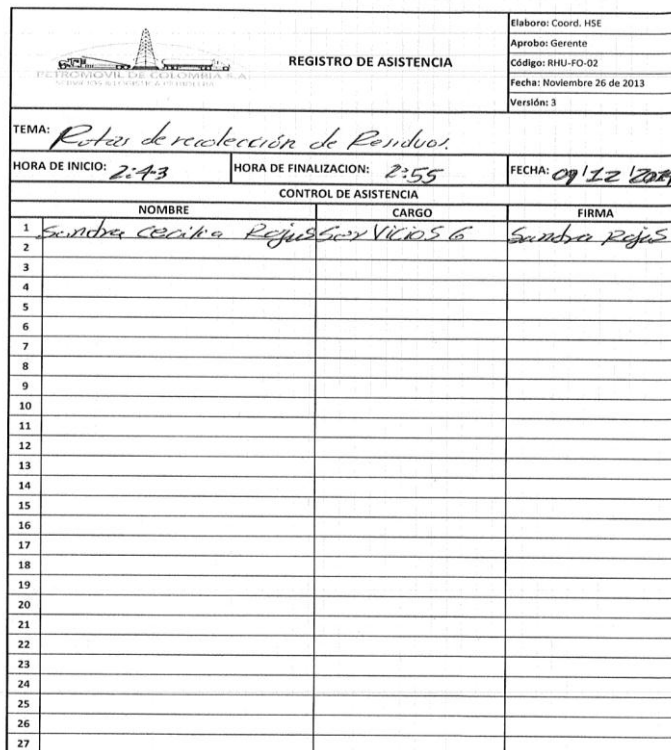 PETROMOVIL DE COLOMBIA S.A.
REGISTRO DE ASISTENCIA
Elaboro: Coord. HSE
Aprobo: Gerente
Código: RHU-FO-02
Fecha: Noviembre 26 de 2013
Versión: 3
TEMA: Rutas de recolección de Residuos.
HORA DE INICIO: 2:43 HORA DE FINALIZACION: 2:55 FECHA: 09/12/
CONTROL DE ASISTENCIA
NOMBRE CARGO FIRMA
1 Sandra Cecilia Rojas Servicios G Sandra Rojas
2
3
4
5
6
7
8
9
10
11
12
13
14
15
16
17
18
19
20
21
22
23
24
25
26
27